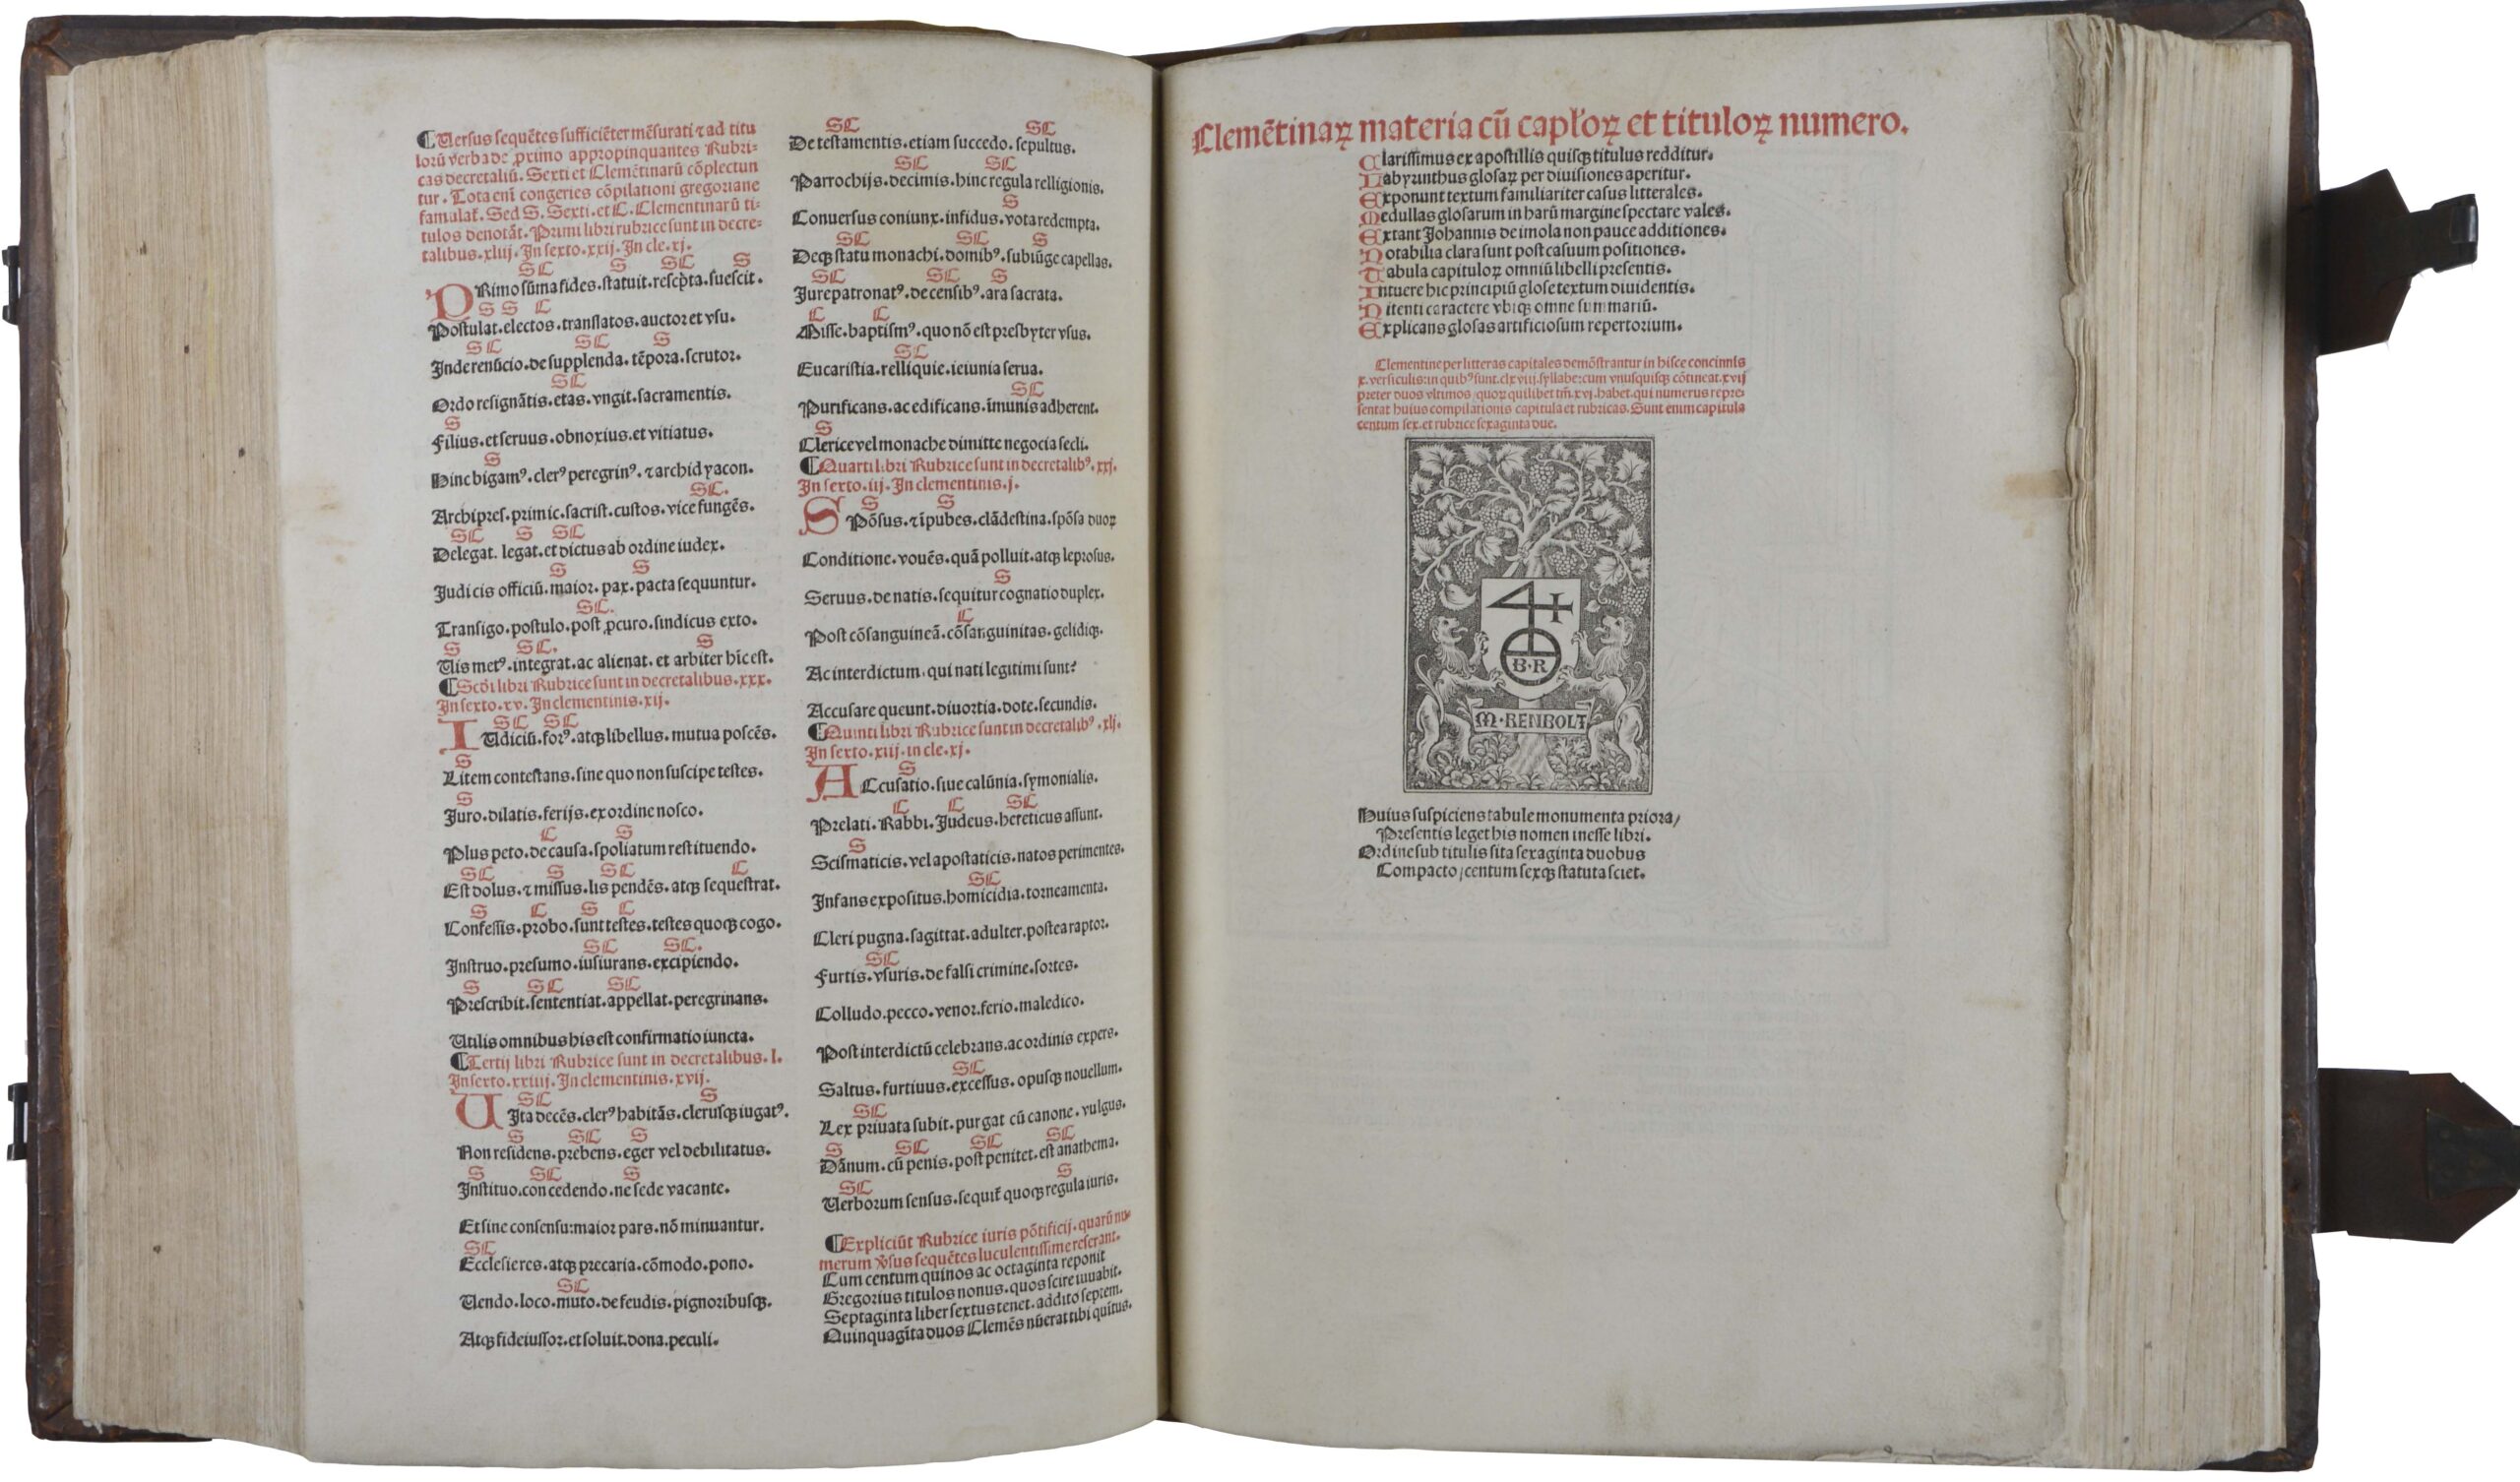 ¶Versus sequētes sufficiēter mēsurati ⁊ ad titu
lorū verba de ꝓximo appropinquantes Rubri-
cas decretaliū. Sexti et Clemētinarū cōplectun
tur. Tota enī congeries cōpilationi gregoriane
famulat̄. Sed S. Sexti. et C. Clementinarū ti-
tulos denotāt. Primi libri rubrice sunt in decre-
talibus. xliij. In sexto. xxij. In cle. xj.
SC S SC S
PRimo sūma fides. statuit. rescpta. suescit.
S S C
Postulat. electos. translatos. auctor et vsu.
SC SC S
Inde renūcio. de supplenda. tēpora. scrutor.
SC
Ordo resignātis. etas. vngit. sacramentis.
S
Filius. et seruus. obnoxius. et vitiatus.
S
Hinc bigamꝰ. clerꝰ peregrinꝰ. ⁊ archidyacon.
SC.
Archipres. primic. sacrist. custos. vice fungēs.
SC S SC
Delegat. legat. et dictus ab ordine iudex.
S S
Judicis officiū. maior. pax. pacta sequuntur.
SC.
Transigo. postulo. post ꝓcuro. sindicus exto.
S SC. S
Vis metꝰ. integrat. ac alienat. et arbiter hīc est.
¶Scdi libri Rubrice sunt in decretalibus. xxx.
In sexto. xv. In clementinis. xij.
SC SC
IUdiciū. forꝰ. atqꝫ libellus. mutua poscēs.
S
Litem contestans. sine quo non suscipe testes.
S
Juro. dilatis. ferijs. ex ordine nosco.
C S
Plus peto. de causa. spoliatum restituendo.
SC S SC C
Est dolus. ⁊ missus. lis pendēs. atqꝫ sequestrat.
S C S C
Confessis. probo. sunt testes. testes quoqꝫ cogo.
SC SC.
Instruo. presumo. iusiurans. excipiendo.
S SC SC
Prescribit. sententiat. appellat. peregrinans.
Utilis omnibus his est confirmatio iuncta.
¶Tertij libri Rubrice sunt in decretalibus. l.
In sexto. xxiiij. In clementinis. xvij.
SC S
UIta decēs. clerꝰ habitās. clerusqꝫ iugatꝰ.
S SC S
Non residens. prebens. eger vel debilitatus.
S SC S
Instituo. concedendo. ne sede vacante.
Et sine consensu: maior pars. nō minuantur.
SC
Ecclesie res. atqꝫ precaria. cōmodo. pono.
SC
Vendo. loco. muto. de feudis. pignoribusqꝫ.
Atqꝫ fideiussor. et soluit. dona. peculi.
SC SC
De testamentis. etiam succedo. sepultus.
SC SC
Parrochijs. decimis. hinc regula relligionis.
S
Conuersus coniunx. infidus. vota redempta.
SC SC S
Deqꝫ statu monachi. domibꝰ. subiūge capellas.
SC SC S
Jure patronatꝰ. de censibꝰ. ara sacrata.
C C
Misse. baptismꝰ. quo nō est presbyter vsus.
SC
Eucaristia. relliquie. ieiunia serua.
SC
Purificans. ac edificans. īmunis adherent.
S
Clerice vel monache dimitte negocia secli.
¶Quarti libri Rubrice sunt in decretalibꝰ. xxj.
In sexto. iij. In clementinis. j.
S S
SPōsus. ⁊ īpubes. clādestina. spōsa duoꝝ
Conditione. vouēs. quā polluit. atqꝫ leprosus.
S
Seruus. de natis. sequitur cognatio duplex.
C
Post cōsanguineā. cōsanguinitas. gelidiqꝫ.
Ac interdictum. qui nati legitimi sunt?
Accusare queunt. diuortia. dote. secundis.
¶Quinti libri Rubrice sunt in decretalibꝰ. xlj.
In sexto. xiij. in cle. xj.
S
ACcusatio. siue calūnia. symonialis.
C C SC
Prelati. Rabbi. Judeus. hereticus assunt.
S
Scismaticis. vel apostaticis. natos perimentes.
SC
Infans expositus. homicidia. torneamenta.
Cleri pugna. sagittat. adulter. postea raptor.
SC
Furtis. vsuris. de falsi crimine. sortes.
Colludo. pecco. venor. ferio. maledico.
Post interdictū celebrans. ac ordinis expers.
SC
Saltus. furtiuus. excessus. opusqꝫ nouellum.
SC
Lex priuata subit. purgat cū canone. vulgus.
S SC SC SC
Dānum. cū penis. post penitet. est anathema.
SC S
Verborum sensus. sequit̄ quoqꝫ regula iuris.
¶Expliciūt Rubrice iuris pōtificij. quarū nu
merum v̄sus sequētes luculentissime reserant.
Cum centum quinos ac octaginta reponit
Gregorius titulos nonus. quos scire iuuabit.
Septaginta liber sextus tenet. addito septem.
Quinquagīta duos Clemēs nūerat tibi quītus.
Clemētinaꝝ materia cū capłoꝝ et tituloꝝ numero.
Clarissimus ex apostillis quisqꝫ titulus redditur.
Labyrinthus glosaꝝ per diuisiones aperitur.
Exponunt textum familiariter casus litterales.
Medullas glosarum in harū margine spectare vales.
Extant Johannis de imola non pauce additiones.
Notabilia clara sunt post casuum positiones.
Tabula capituloꝝ omniū libelli presentis.
Intuere hic principiū glose textum diuidentis.
Nitenti caractere vbiqꝫ omne summariū.
Explicans glosas artificiosum repertorium.
Clementine per litteras capitales demōstrantur in hisce concinnis
x. versiculis: in quibꝰ sunt. clxviij. syllabe: cum vnusquisqꝫ cōtineat. xvij
preter duos vltimos / quoꝝ quilibet tm̄. xvj. habet. qui numerus repre-
sentat huius compilationis capitula et rubricas. Sunt enim capitula
centum sex. et rubrice sexaginta due.
B·R
M·RENBOLT
Huius suspiciens tabule monumenta priora/
Presentis leget his nomen inesse libri.
Ordine sub titulis sita sexaginta duobus
Compacto / centum sexqꝫ statuta sciet.